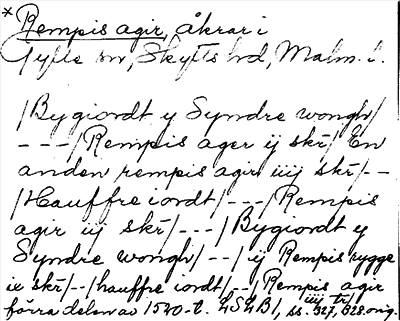 * Rempis agir, åkrar i
Gylle sn, Skytts hd, Malm. l.
/Bygiordt y Syndre wongh/
---/Rempis ager ij skr/ En
anden rempis agir iiij skr/--
/Hauffre iordt/---/Rempis
agir iij skr/---/Bygiordt y
Syndre wongh/--/ij Rempis rygge
ix skr/--/hauffre iordt/--/Rempis agir
iiij tr/
förra delen av 1570-t. LSLB1, ss. 327, 328 orig.